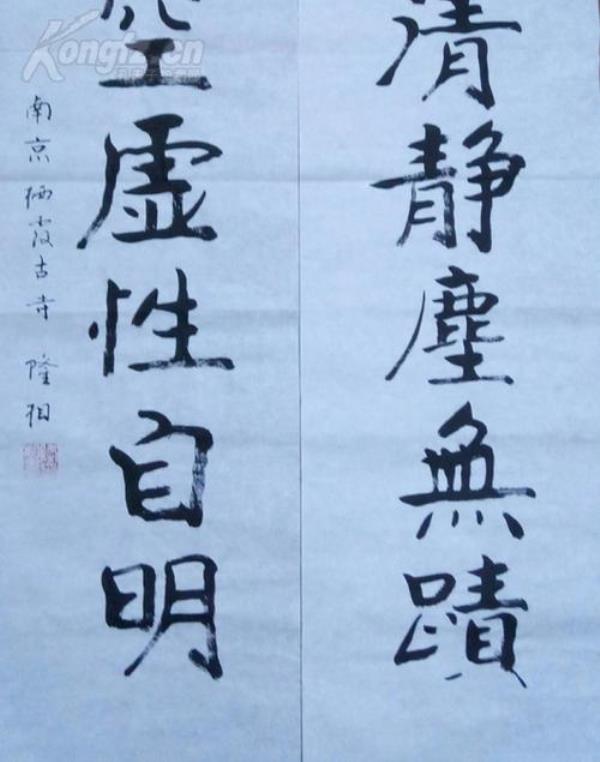 清静塵無蹟
空虚性自明
南京栖霞古寺 隆相
Kongfz.cn